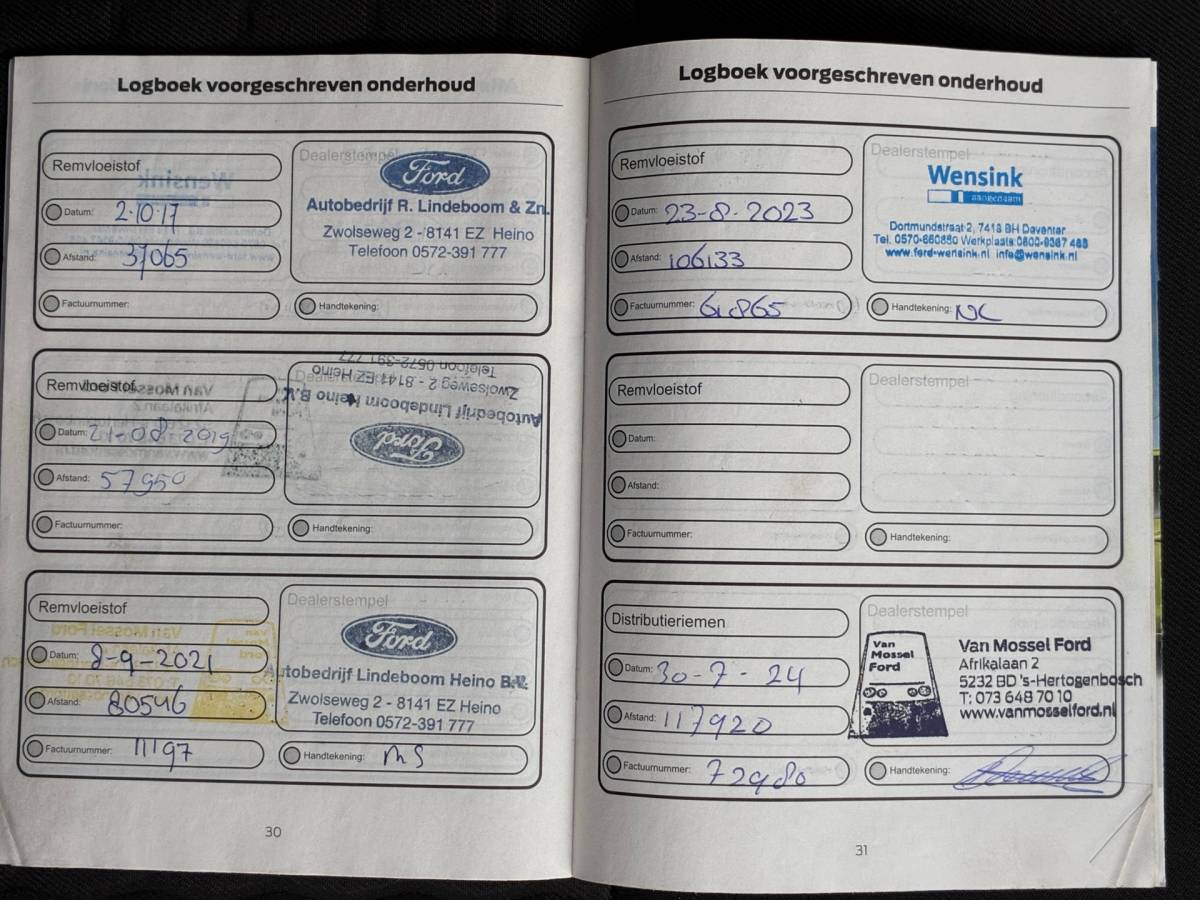 Logboek voorgeschreven onderhoud
Remvloeistof
Dealerstempel
Ford
Autobedrijf R. Lindeboom & Zn.
Zwolseweg 2 - 8141 EZ Heino
Telefoon 0572-391 777
Datum: 2·10·17
Afstand: 37065
Factuurnummer:
Handtekening:
Remvloeistof
Ford
Autobedrijf Lindeboom Heino B.V.
Zwolseweg 2 - 8141 EZ Heino
Telefoon 0572-391 777
Datum: 21-08 2019
Afstand: 57950
Factuurnummer:
Handtekening:
Remvloeistof
Dealerstempel
Ford
Autobedrijf Lindeboom Heino B.V.
Zwolseweg 2 - 8141 EZ Heino
Telefoon 0572-391 777
Datum: 8-9-2021
Afstand: 80546
Factuurnummer: 11197
Handtekening: MS
30
Logboek voorgeschreven onderhoud
Remvloeistof
Dealerstempel
Wensink
aangenaam
Dortmundstraat 2, 7418 BH Deventer
Tel. 0570-660660 Werkplaats 0800-9367 465
www.ford-wensink.nl info@wensink.nl
Datum: 23-8-2023
Afstand: 106133
Factuurnummer: 61865
Handtekening: NC
Remvloeistof
Dealerstempel
Datum:
Afstand:
Factuurnummer:
Handtekening:
Distributieriemen
Dealerstempel
Van
Mossel
Ford
Van Mossel Ford
Afrikalaan 2
5232 BD 's-Hertogenbosch
T: 073 648 70 10
www.vanmosselford.nl
Datum: 30-7-24
Afstand: 117920
Factuurnummer: 72980
Handtekening:
31